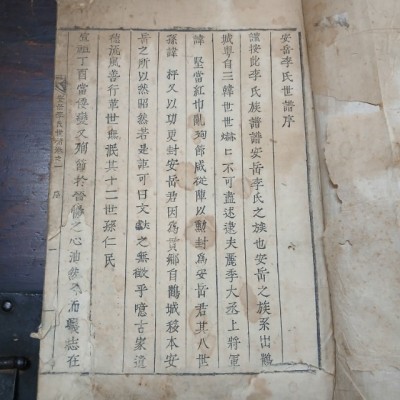 安岳李氏世譜序
謹按此李氏族譜譜安岳李氏之族也安岳之族系出鶴
城粤自三韓世世
不可盡述逮夫麗季大丞上將軍
諱 堅當紅巾亂殉節咸從陣以勳封爲安岳君其八世
孫諱 抨又以功更封安岳君因爲貫鄉自鶴城移本安
岳之所以然昭然若是誰可曰文獻之無徵乎噫古家遺
德施風善行葉世無泯其十二世孫仁民
當
又殉節於晉
之心油然
而
志在
安岳李氏世譜卷之一
序